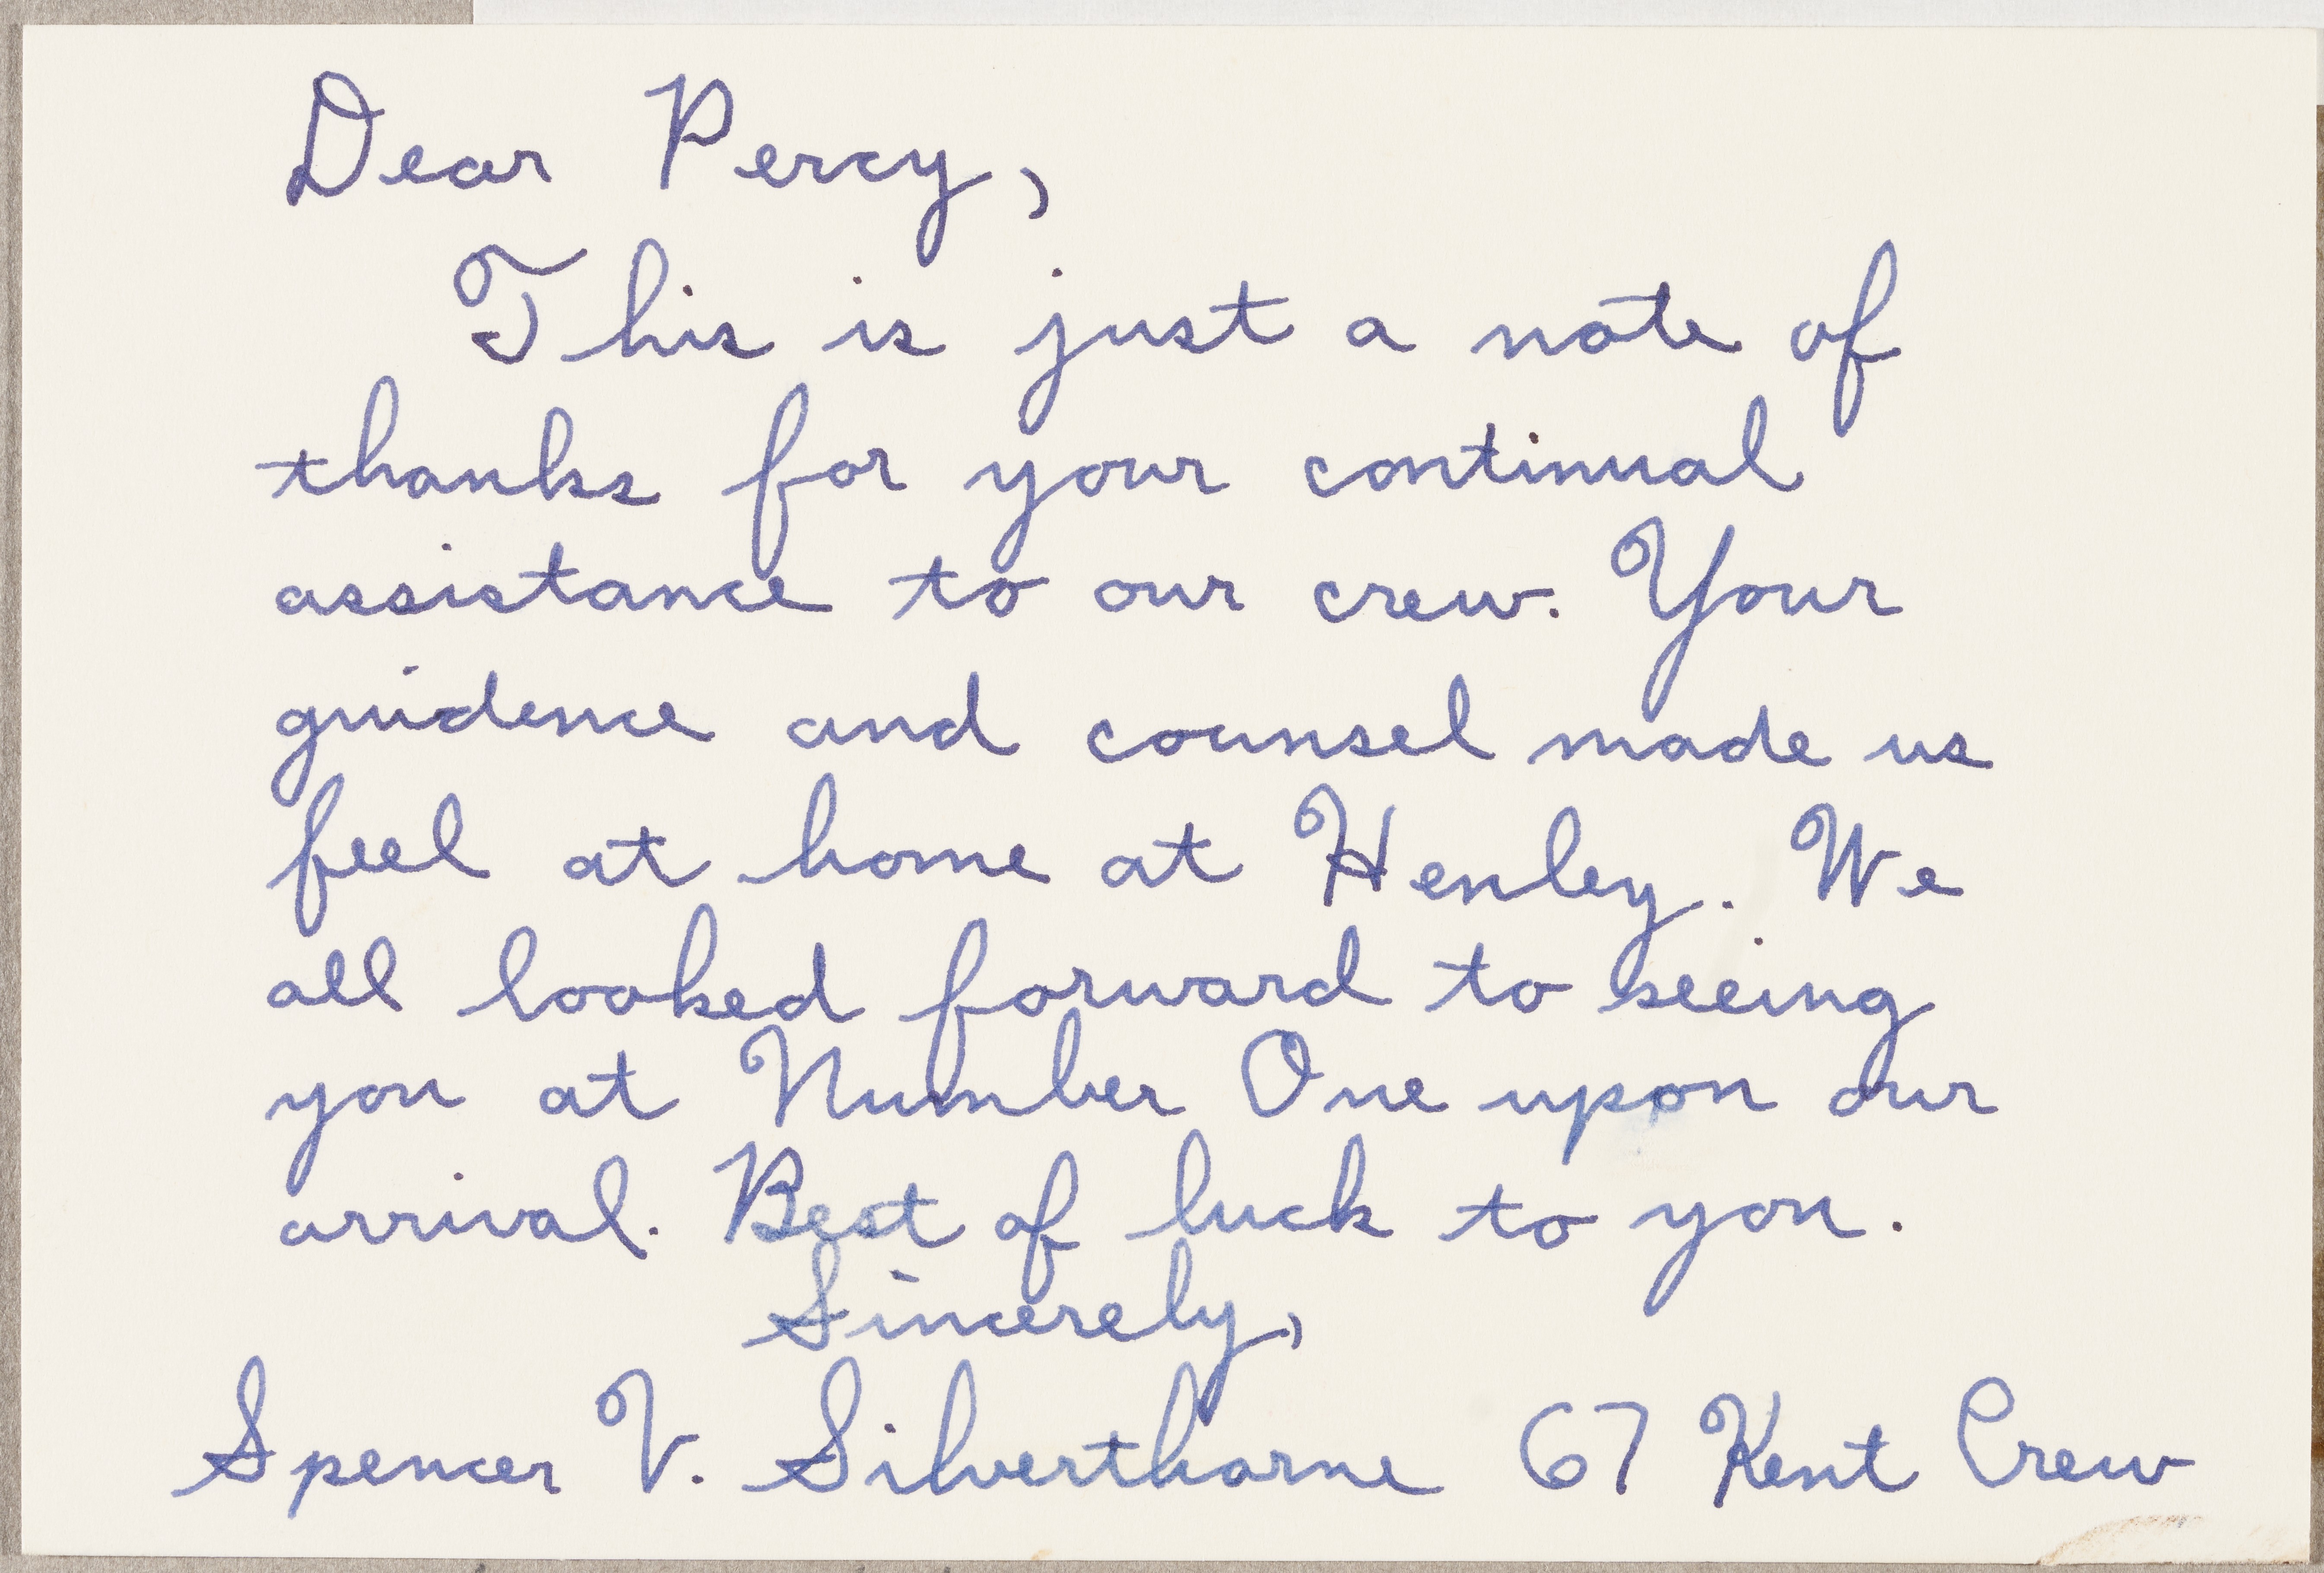 Dear Percy,
This is just a note of
thanks for your continual
assistance to our crew. Your
guidence and counsel made us
feel at home at Henley. We
all looked forward to seeing
you at Number One upon our
arrival. Best of luck to you.
Sincerely,
Spencer V. Silverthorne 67 Kent Crew